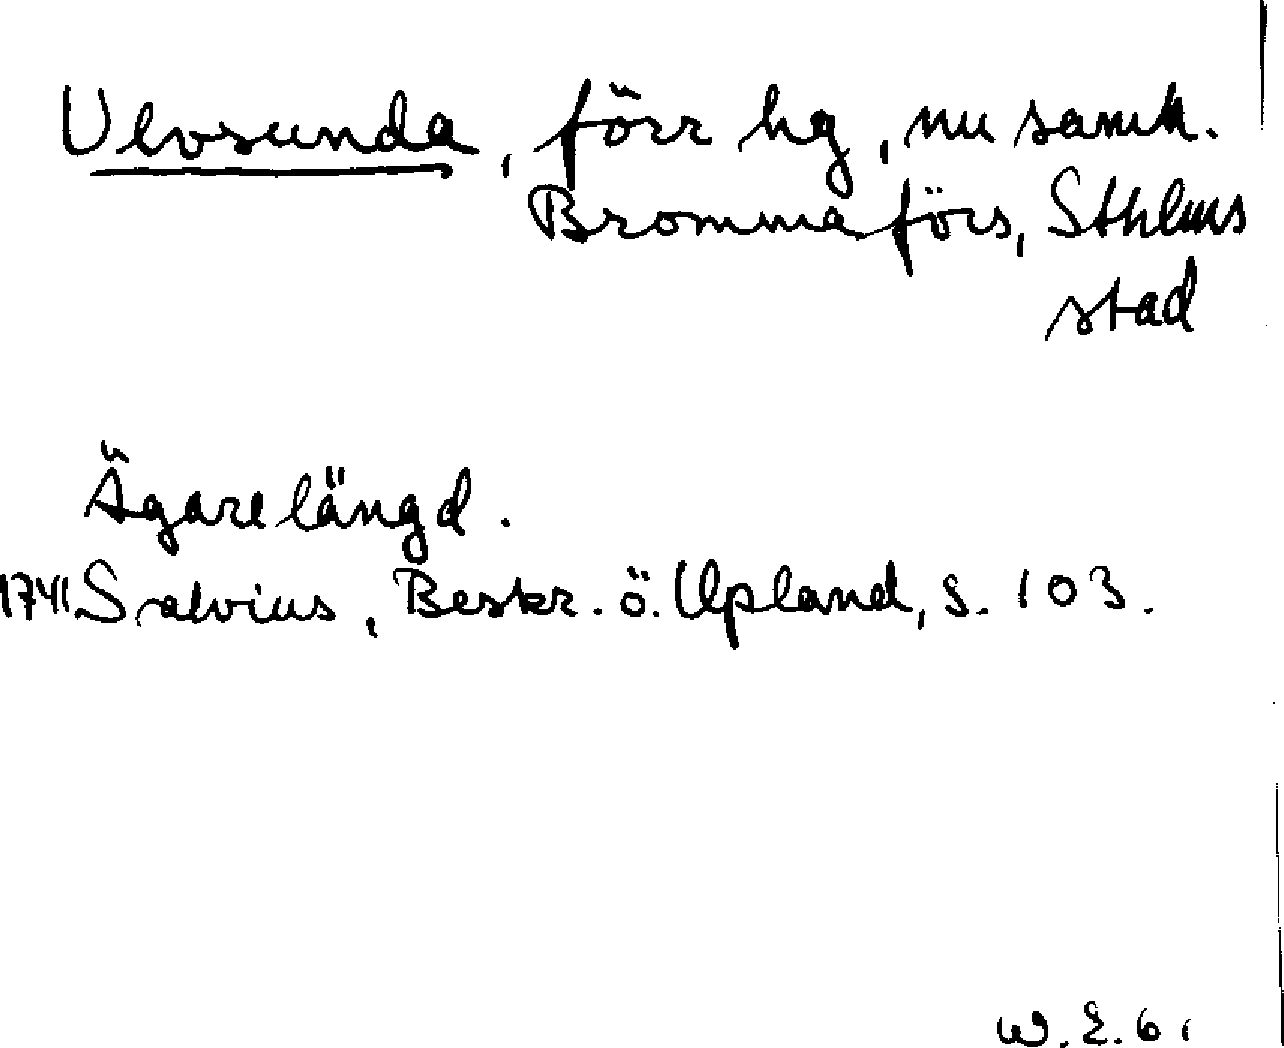 Ulvsunda, förr hg, nu samh.
Bromma förs, Sthlms
stad
Ägarelängd.
1741 Salvius, Beskr. ö. Upland, s. 103.
W. E. 61